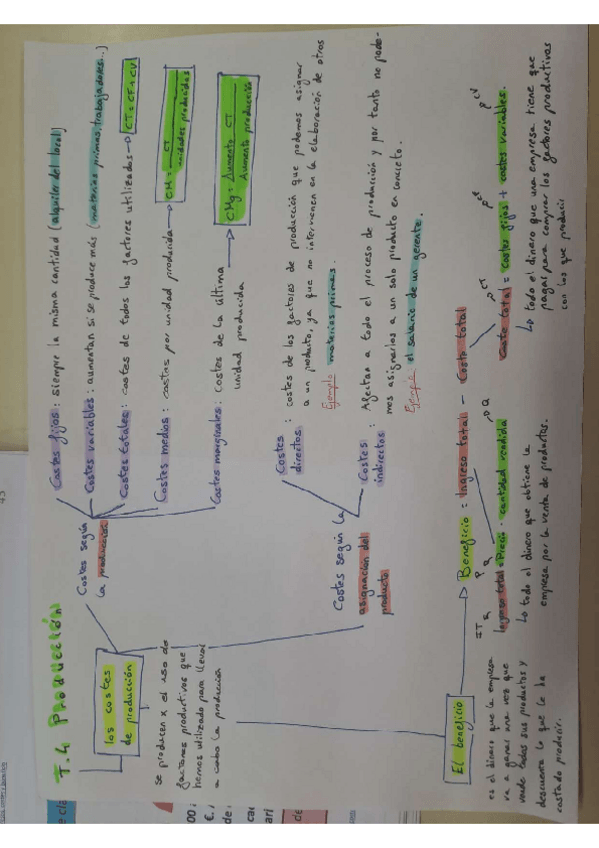 T.4 Producción
los costes
de producción
se producen x el uso de
factores productivos que
hemos utilizado para llevar
a cabo la producción
Costes según
la producción
Costes fijos: siempre la misma cantidad (alquiler del local)
Costes variables: aumentan si se produce más (materias primas, trabajadores...)
Costes totales: costes de todos los factores utilizados → CT = CF + CV
Costes medios: costes por unidad producida → CM = CT
unidades producidas
Costes marginales: costes de la última
unidad producida
CMg = Aumento CT
Aumento producción
Costes según la
asignación del
producto
Costes
directos
: costes de los factores de producción que podemos asignar
a un producto, ya que no intervienen en la elaboración de otros
Ejemplo materias primas.
Costes
indirectos
: Afectan a todo el proceso de producción y por tanto no pode-
mos asignarlos a un solo producto en concreto.
Ejemplo: el salario de un gerente.
El beneficio
es el dinero que la empresa
va a ganar una vez que
vende todas sus productos y
descuenta lo que le ha
costado producir.
Beneficio = Ingreso total - Costo total
IT P Q
Ingreso total = Precio · cantidad vendida
Lo todo el dinero que obtiene la
empresa por la venta de productos.
CT CF CV
Coste total = costes fijos + costes variables.
Lo todo el dinero que una empresa tiene que
pagar para comprar los factores productivos
con los que producir